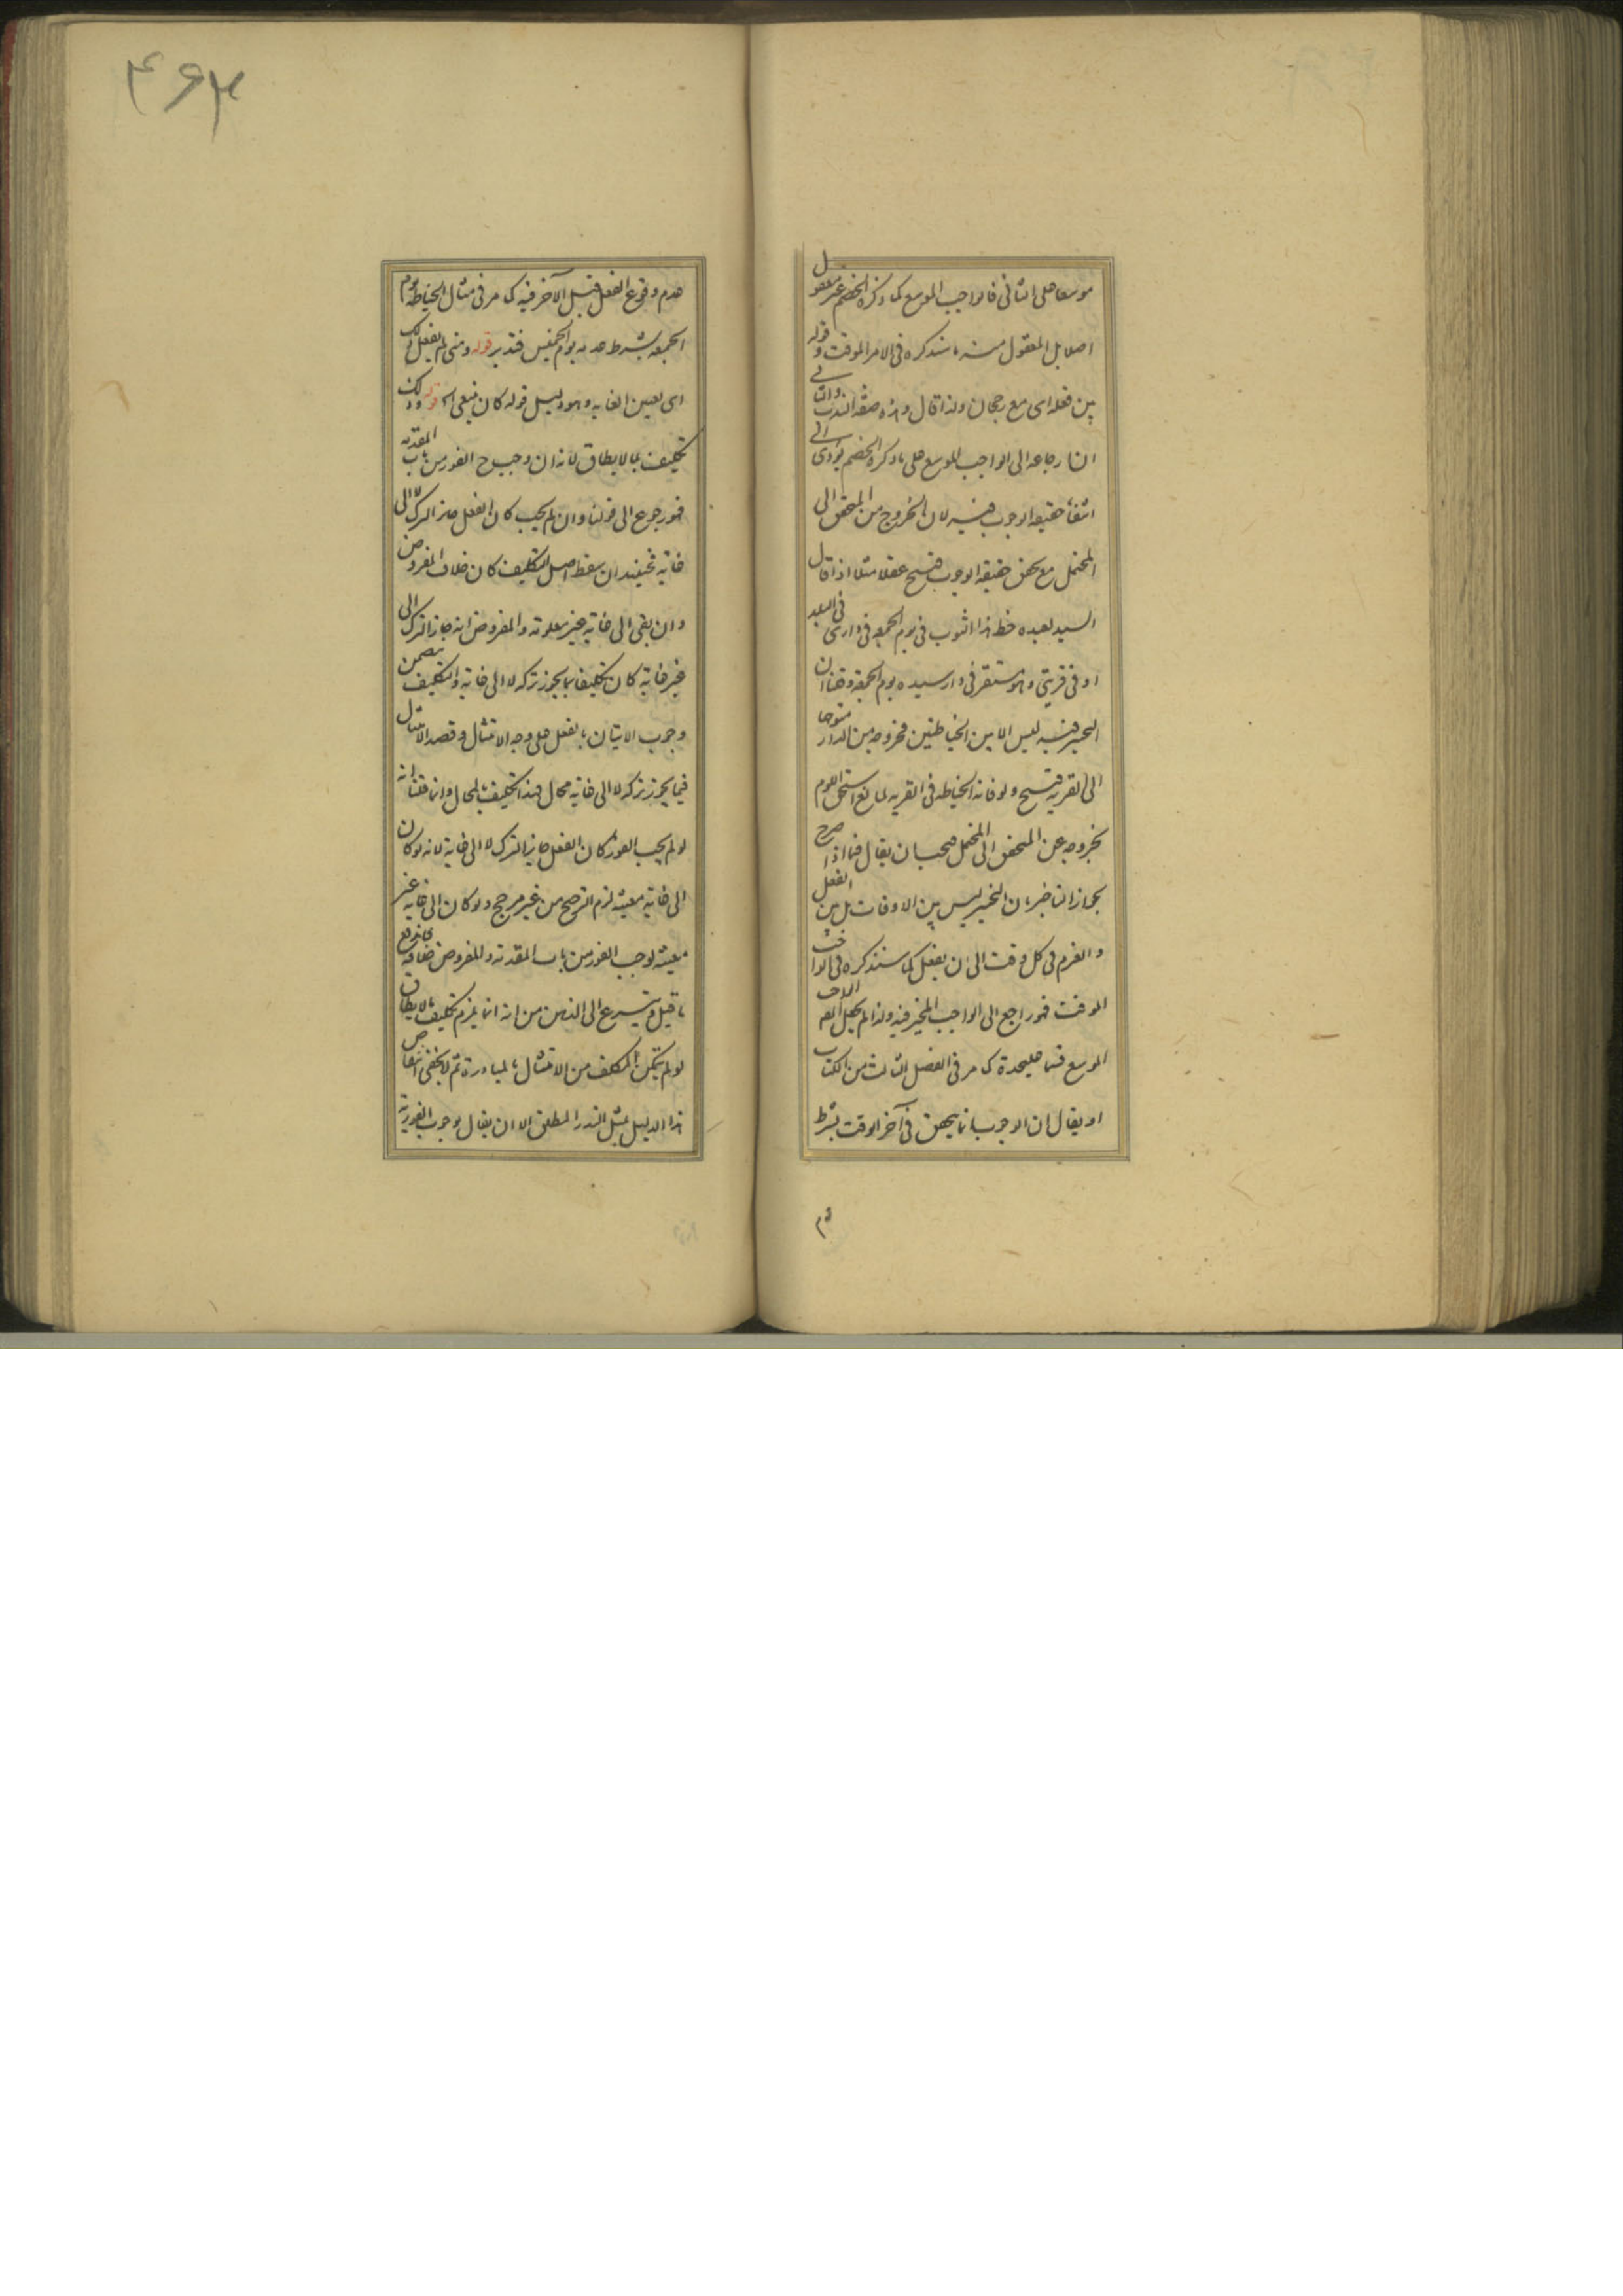 موسعا على الثانى فالواجب الموسع كما ذكره الخصم غير معقول
اصلا بل المعقول منه ما سنذكره فى الامر الموقت وقوله
بين فعله اى مع رجحان ولذا قال وهذه صفة الندب والثانى
ان ارجاعه الى الواجب الموسع على ما ذكره الخصم يؤدى الى
انتفاء حقيقة الوجوب فيه لان الخروج من المحقق الى
المحتمل مع تحقق حقيقة الوجوب قبيح عقلا مثلا اذا قال
السيد لعبده خط هذا الثوب فى يوم الجمعة فى دارى فى البلد
او فى قريتى وهو مستقر فى دار سيده يوم الجمعة وقلنا ان
التخيير فيه ليس الا بين الخياطتين فخروجه من الدار متوجها
الى القرية قبيح ولو فاته الخياطة فى القرية لمانع استحق اللوم
بخروجه عن المحقق الى المحتمل فيجب ان يقال فيما اذا صرح
بجواز التاخير ان التخيير ليس بين الاوقات بل بين الفعل
والعزم فى كل وقت الى ان يفعل كما سنذكره فى الواجب
الموقت فهو راجع الى الواجب المخير فيه ولذا لم يجعل المص الواجب
الموسع قسما عليحدة كما مر فى الفصل الثالث من الكتاب
او يقال ان الوجوب انما يتحقق فى آخر الوقت بشرط
عدم وقوع الفعل قبل الآخر فيه كما مر فى مثال الخياطة يوم
الجمعة بشرط عدمه يوم الخميس فتدبر قوله ومتى لم يفعل ذلك
اى تعيين الغاية وهو دليل قوله كان ينبغى اه قوله وذلك
تكليف بما لا يطاق لانه ان وجب ح الفور من باب المقدمة
فهو رجوع الى قولنا وان لم يجب كان الفعل جائز الترك لا الى
غاية فحينئذ ان سقط اصل التكليف كان خلاف المفروض
وان بقى الى غاية غير معلومة والمفروض انه جاز الترك الى
غير غاية كان تكليفا بما يجوز تركه لا الى غاية والتكليف يتضمن
وجوب الاتيان بالفعل على وجه الامتثال وقصد الامتثال
فيما يجوز تركه لا الى غاية محال فهذا تكليف بالمحال وانما قلنا انه
لو لم يجب الفور كان الفعل جائز الترك لا الى غاية لانه لو كان
الى غاية معينة لزم الترجيح من غير مرجح ولو كان الى غاية غير
معينة لوجب الفور من باب المقدمة والمفروض خلافه فاندفع
ما قيل ويتسرع الى الذهن من انه انما يلزم تكليف ما لا يطاق
لو لم يتمكن المكلف من الامتثال بالمبادرة ثم لا يخفى انتقاض
هذا الدليل بمثل النذر المطلق الا ان يقال بوجوب الفورية
۴۶۳